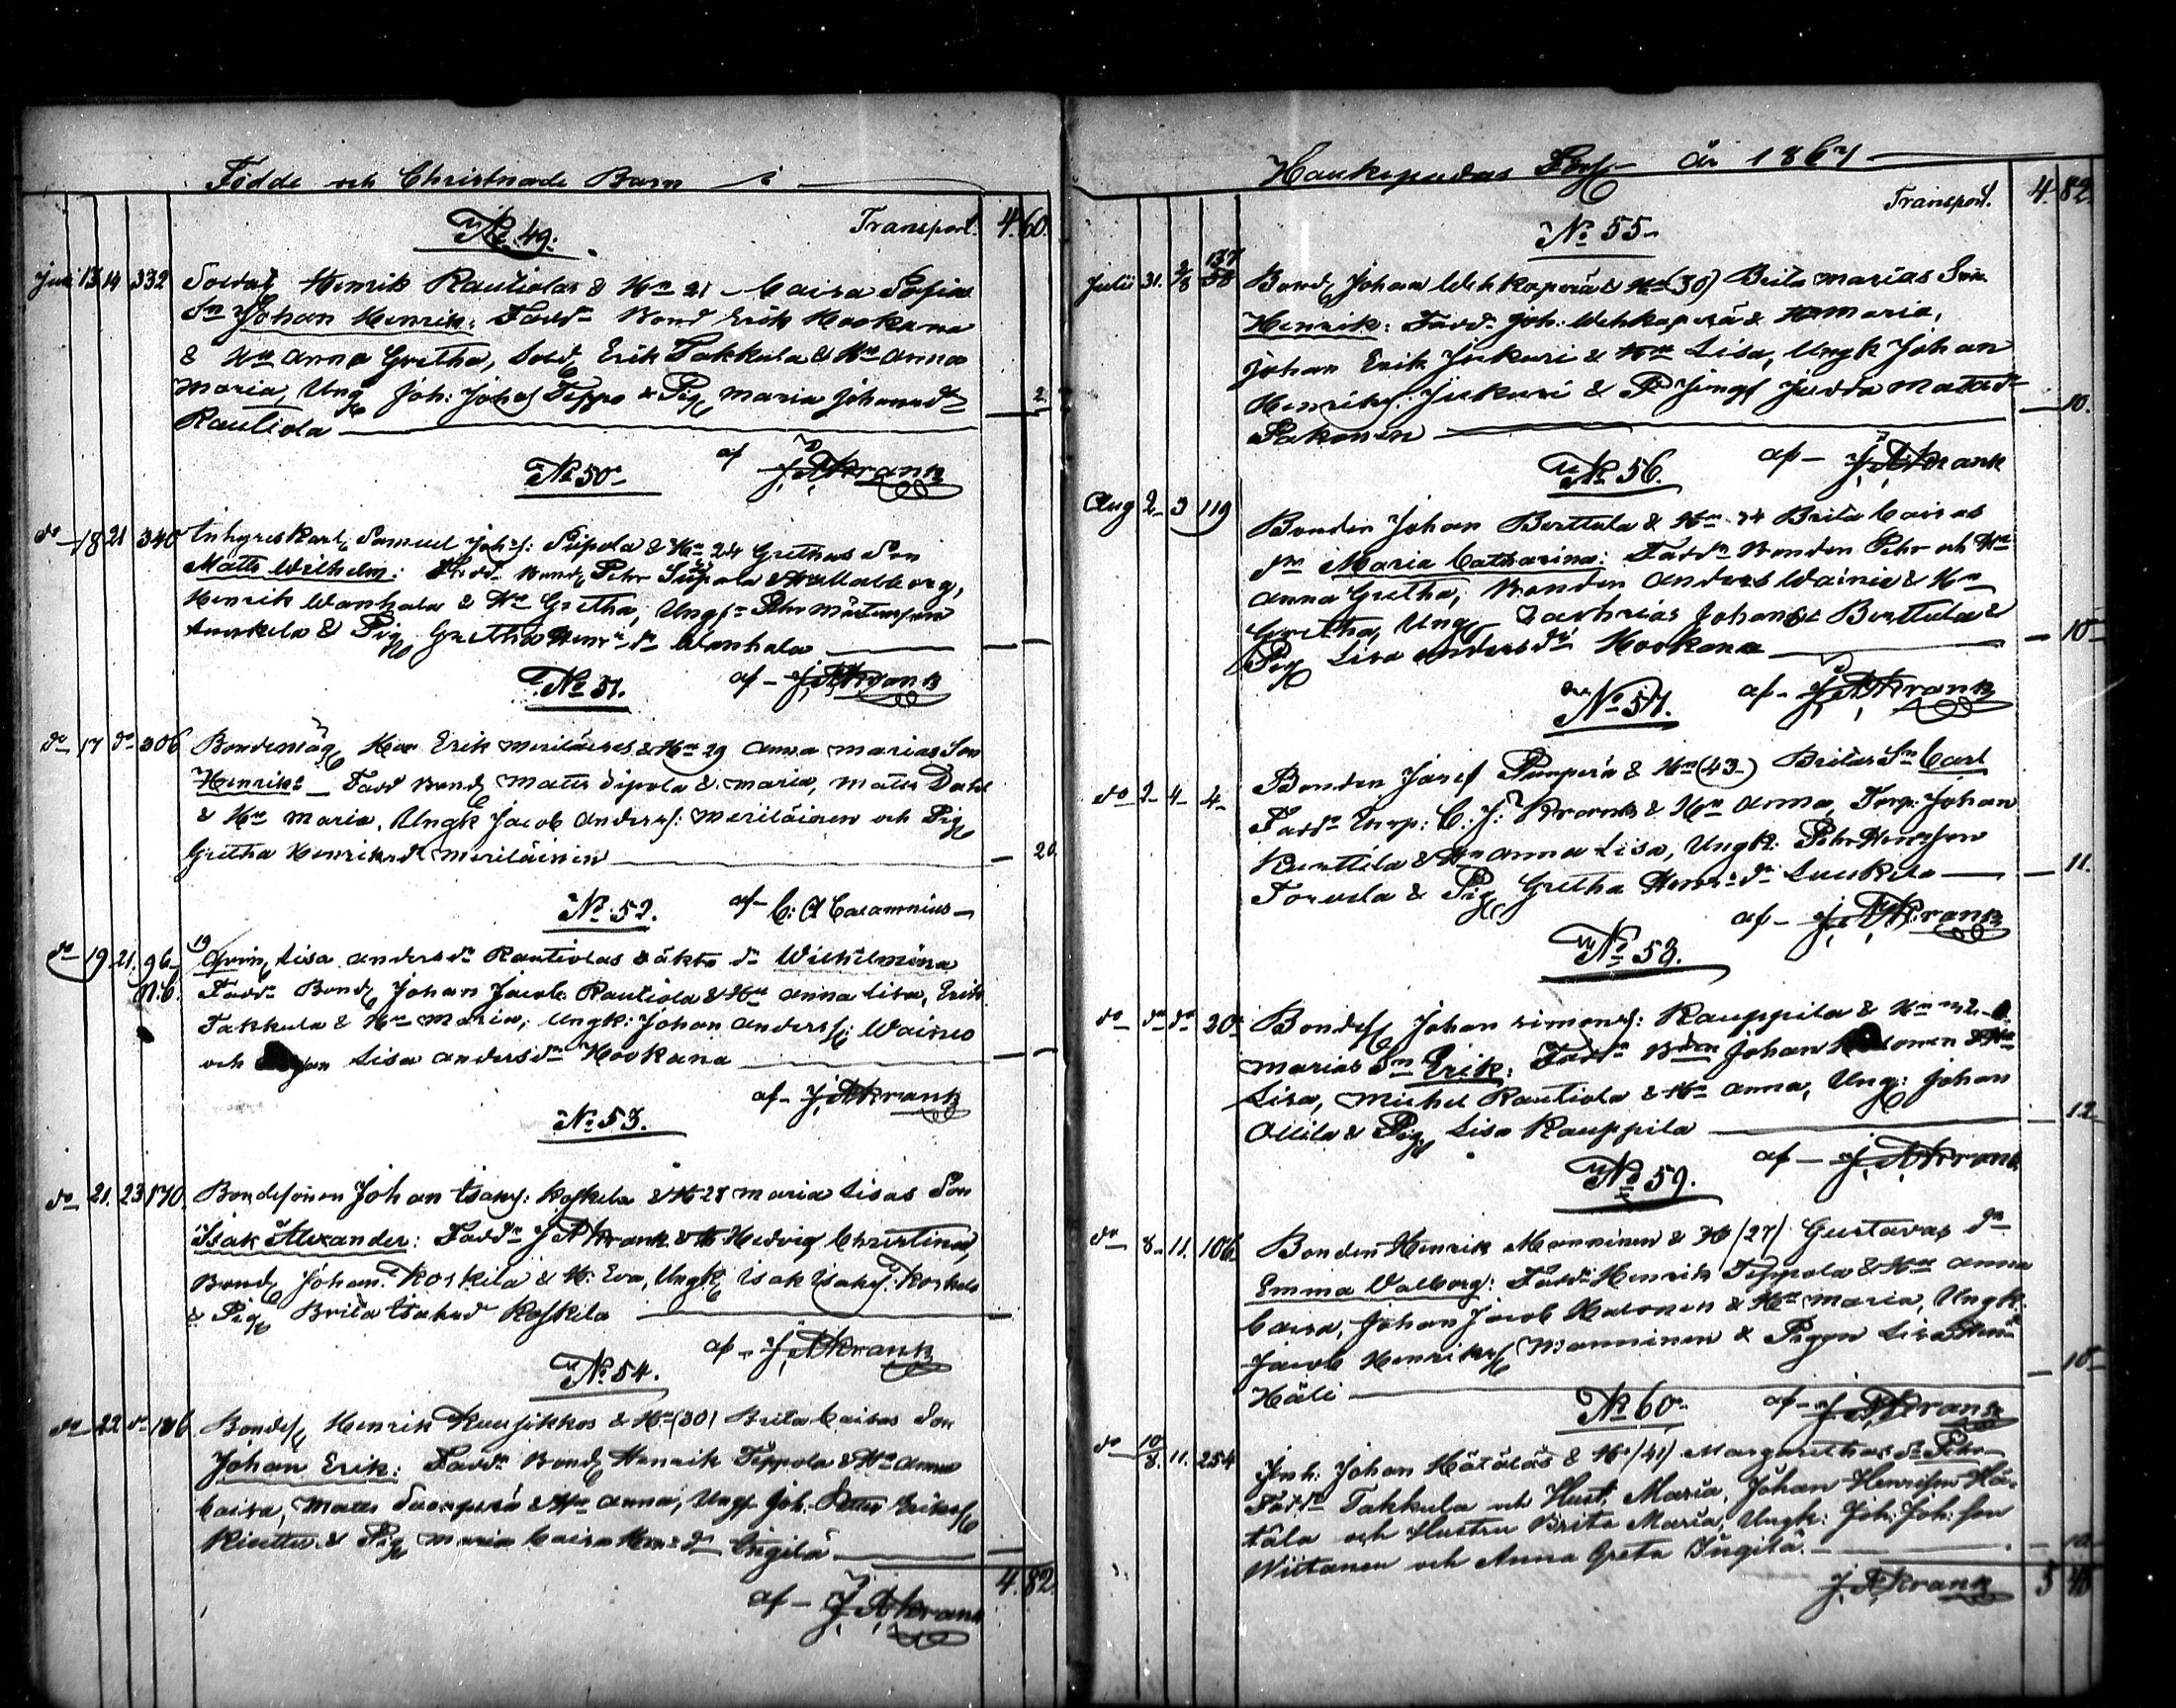 Födde och Christnade Barn i
Transport. 4. 60.
No 49.
Juli 13 14 332 Soldat Henrik Rautiolas & Hu 21 Caisa Sofias
Sn Johan Henrik: Fadd. Bond Erik Hookana
& Hu Anna Gretha, Sold Erik Takkula & Hu Anna
Maria, Ung Joh: Johs Teppo & Pig Maria Johansdr 2
Rautiola
af J. A. Krank
No 50
do 18 21 340 Inhyseskarl Samuel Johs: Siipola & Hu 24 Grethas Son
Matts Wilhelm: Fadd. Bond Pehr Siipola & Hu Walborg,
Henrik Wanhala & Hu Gretha, Ungk Pehr Mårtensson
& Pig Gretha Henr: dr Wanhala
No 51. af J. A. Krank
do 17 do 306 Bondemåg Erik Meriläines & Hu 29 Anna Marias Son
Henrik: Fadd Bond Matts Siipola & Maria, Matts Dahl
& Hu Maria, Ungk Jacob Anderss: Meriläinen och Pig
Gretha Henriksdr Meriläinen 20.
No 52. af C: A Calamnius
do 19. 21. 96. Lisa Andersdr Rautiolas oäkta dr Wilhelmina
N.B. Fadd. Bond Johan Jacob Rautiola & Hu Anna Lisa, Erik
Takkula & Hu Maria, Ungk: Johan Anderss: Wainio
och Lisa Andersdr Hookana
af J. A. Krank
No 53.
do 21. 23 170. Bondesonen Johan Isaks: Koskela & H 28 Maria Lisas Son
Isak Alexander: Fadd. J A Krank & H Hedvig Christina,
Bond Johan Koskela & H. Eva, Ungk: Isak Isaks. Koskela
& Pig Brita Isaksd Koskela
af J. A. Krank
No 54.
do 22 do 186 Bondes Henrik Kuusikkos & Hu (30) Brita Caisas Son
Johan Erik: Fadd. Bond Henrik Teppola & Hu Anna
Caisa, Matts & Hu Anna, Ung Joh. Petter Eriks
Kinttu & Pig Maria Caisa Hen: dr Ängilä
4. 82.
af J. A. Krank
Haukipudas år 1867
Transport. 4. 82.
No 55
Julii 31. 2/8 137 Bond Johan Wehkaperä & Hu (30) Brita Marias Son
Henrik: Fadd. Joh: Wehkaperä & H Maria,
Johan Erik Jukuri & Hu Lisa, Ungk Johan
Henriks. Jukuri & Judda Matsdr 10.
Pakanen
No 56. af J. A. Krank
Aug 2 3 119 Bonden Johan Berttula & Hu 34 Brita Caisas
dr Maria Catharina: Fadd. Bonden Pehr och Hu
Anna Gretha, Bonden Anders Wainio & Hu
Gretha, Ung Zachrias Johans Berttula & 10
Pig Lisa Andersdr Hookana
No 57. af J. A. Krank
do 2 4 4 Bonden Josef Punperä & Hu (43) Britas Sn Carl
Fadd. Torp: C: J: Krank & Hu Anna, Torp: Johan
Kurttila & Hu Anna Lisa, Ungk: Pehr Henrsson
Torvela & Pig Gretha Henr: dr Luukela 11.
af J. A. Krank
No 58.
do do do 20 Bondes Johan Simons: Kauppila & Hu 32
Marias Sn Erik: Fadd. Bden Johan Halonen & Hu
Lisa, Michel Rautiola & Hu Anna, Ung: Johan
Ollila & Pig Lisa Kauppila 12
No 59. af J. A. Krank
do 8 11. 106. Bonden Henrik Manninen & H (27) Gustavas dr
Emma Walborg: Fadd: Henrik Teppola & Hu Anna
Caisa, Johan Jacob Halonen & Hu Maria, Ungk:
Jacob Henriks Manninen & Pigan Lisa 10
Häli
No 60. af J. A. Krank
do 10/8. 11. 254 Inh: Johan Hätäläs & H (41) Margarethas Sn Pehr
Fadd. Takkula och Hust. Maria, Johan Henrikson Hä-
tälä och Hustru Brita Maria, Ungk: Joh: Joh: son
Wiitanen och Anna Greta Ängilä. 10
J. A. Krank 5 45